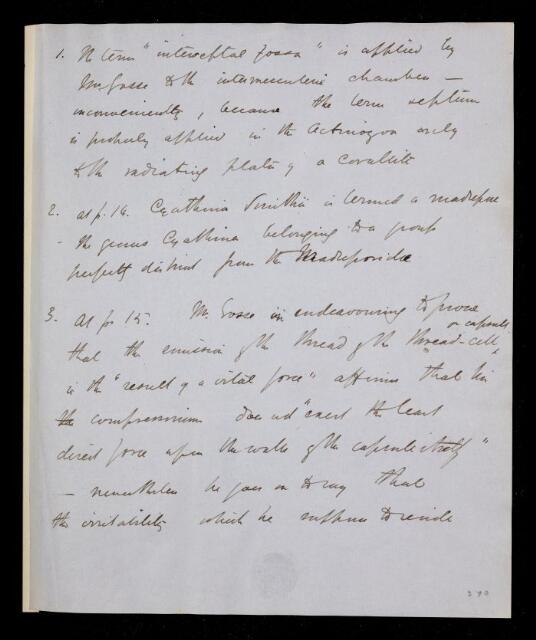 1. The term "interseptal fossa" is applied by
Mr. Gosse to the intermesenteric chamber —
inconveniently, because the term septum
is properly applied in the Actinozoa only
to the radiating plates of a corallite
2. at p. 16. Cyathina Smithii is termed a madrepore
- the genus Cyathina belonging to a group
perfectly distinct from the Madreporidae
3. At p. 15. Mr. Gosse in endeavouring to prove
that the emission of the thread of the thread-cell
or capsule
is the "result of a vital force" affirms that his
the compressorium does not "exert the least
direct force upon the walls of the capsule itself"
— nevertheless he goes on to say that
the irritability which he supposes to reside
290